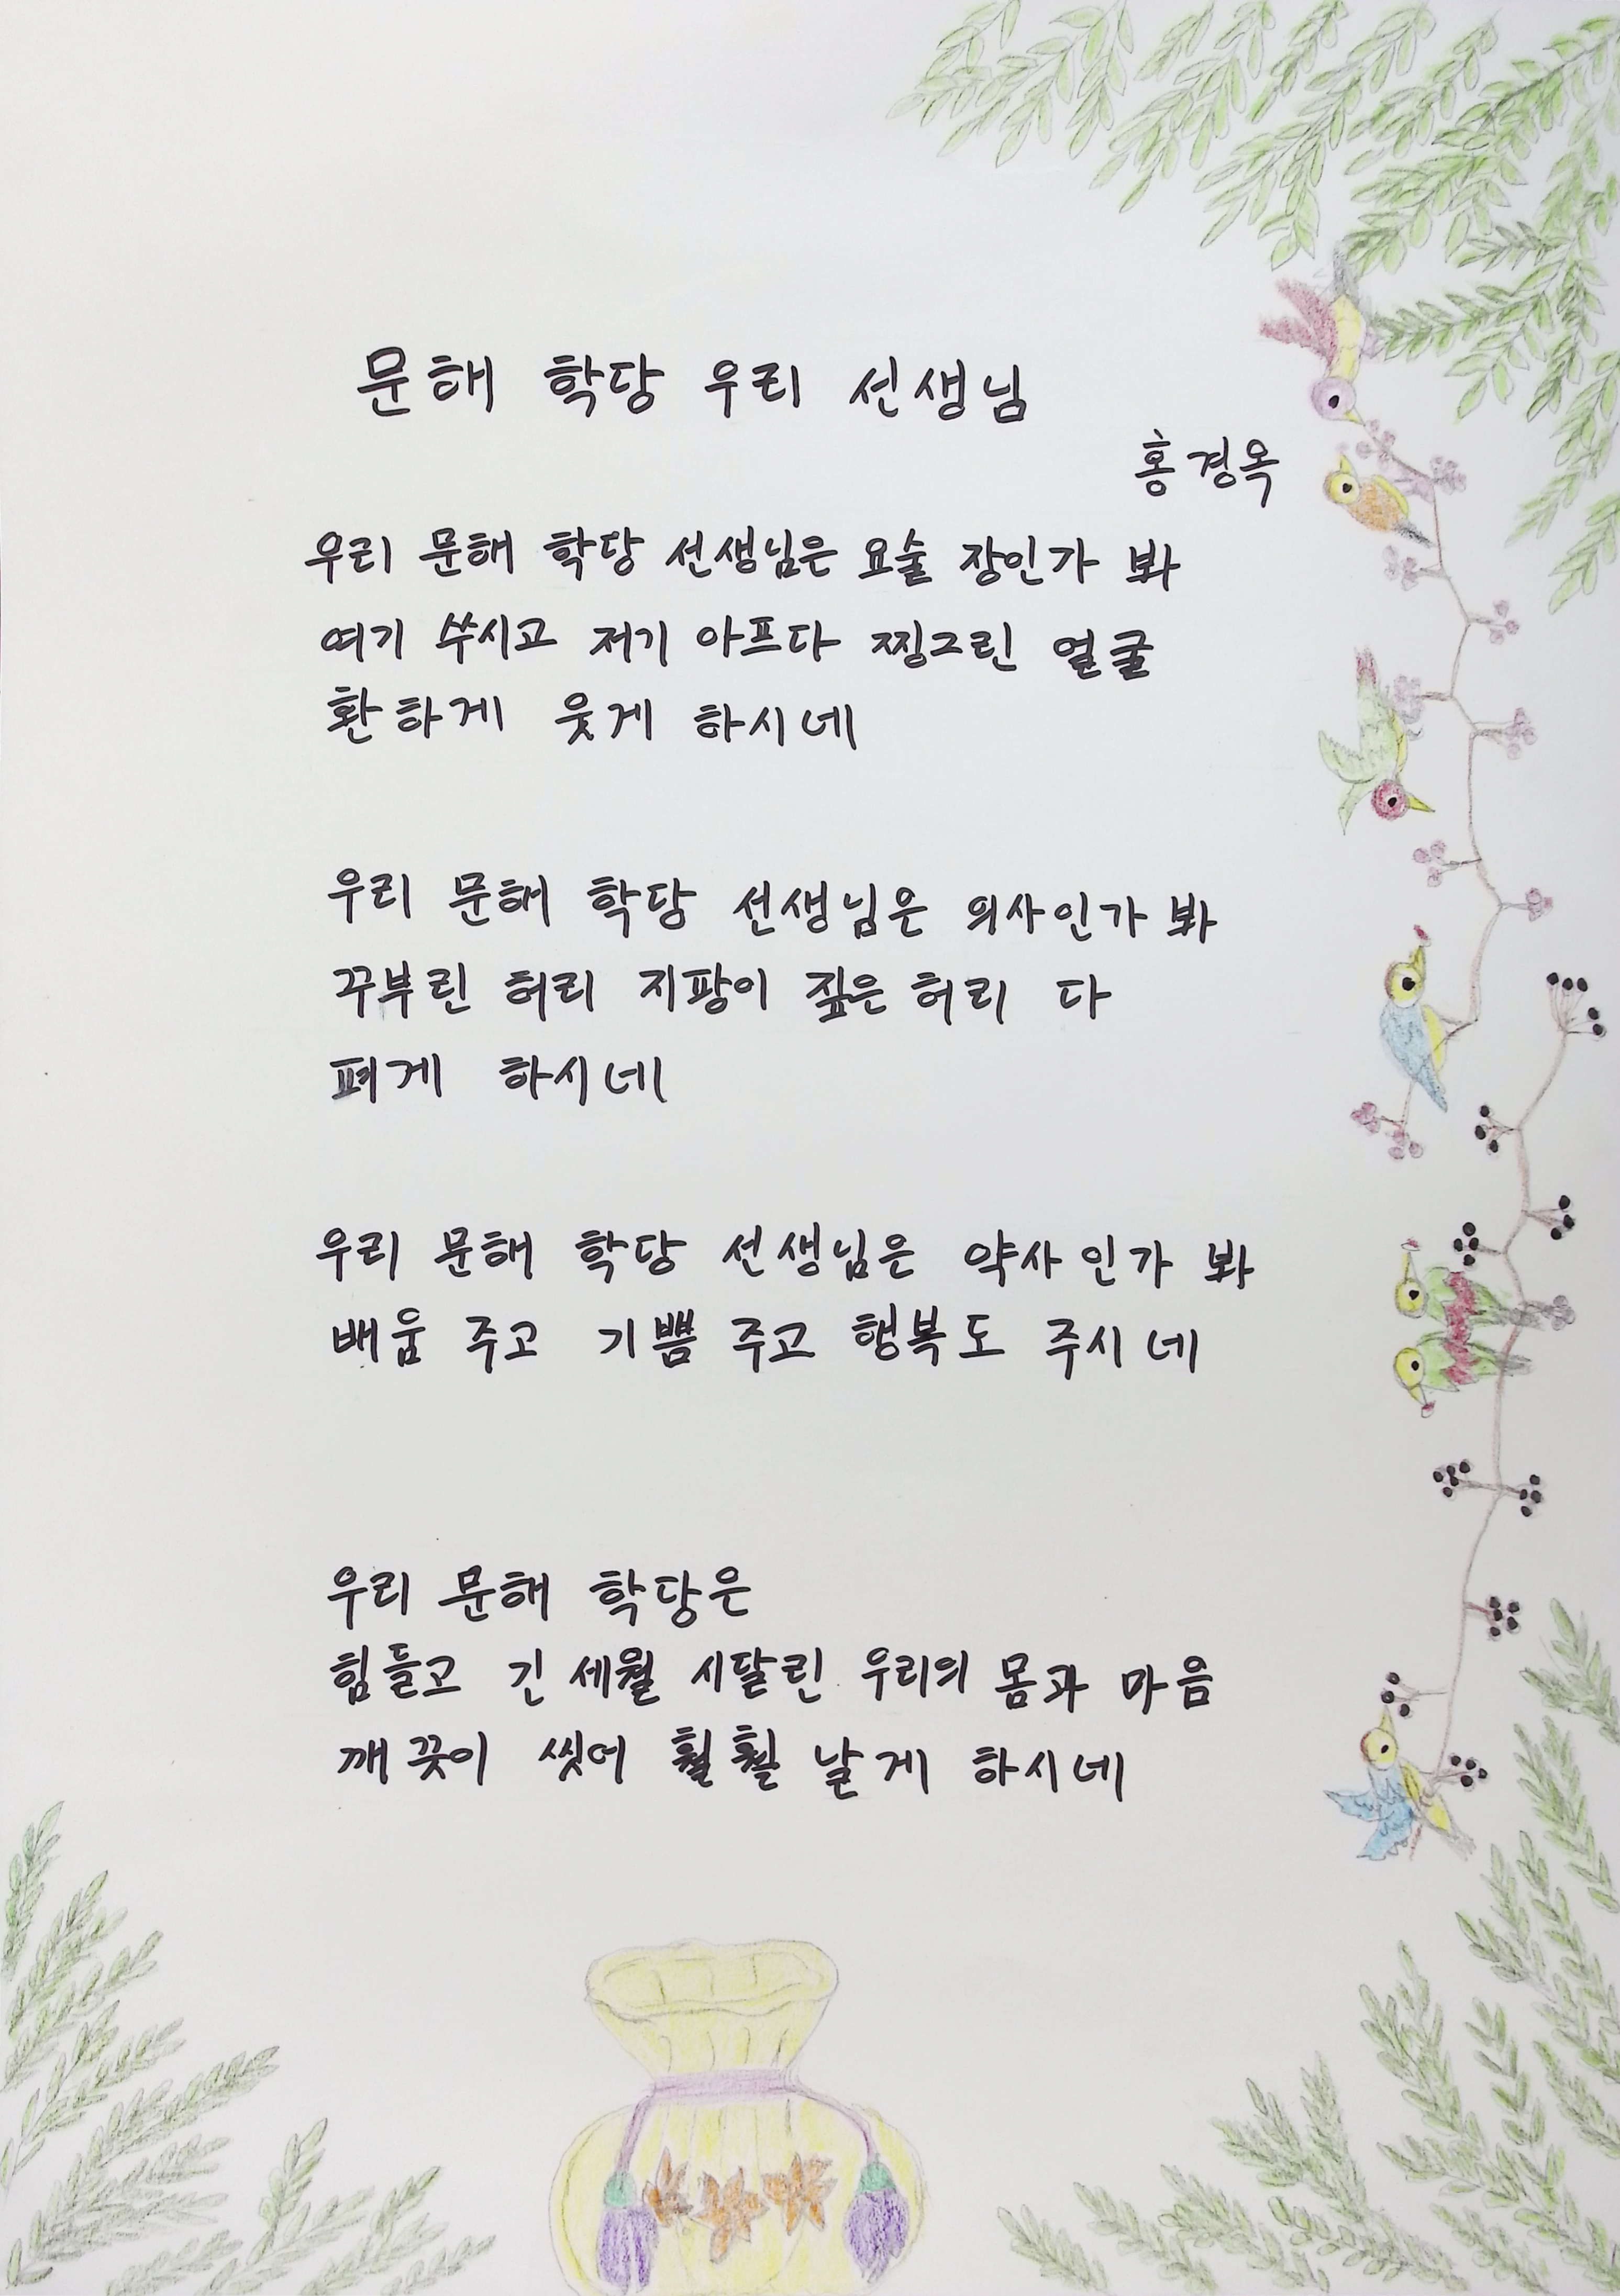 문해 학당 우리 선생님
홍경옥
우리 문해 학당 선생님은 요술 장인가 봐
여기 쑤시고 저기 아프다 찡그린 얼굴
환하게 웃게 하시네
우리 문해 학당 선생님은 의사인가 봐
꾸부린 허리 지팡이 짚은 허리 다
펴게 하시네
우리 문해 학당 선생님은 약사인가 봐
배움 주고 기쁨 주고 행복도 주시네
우리 문해 학당은
힘들고 긴 세월 시달린 우리의 몸과 마음
깨끗이 씻어 훨훨 날게 하시네